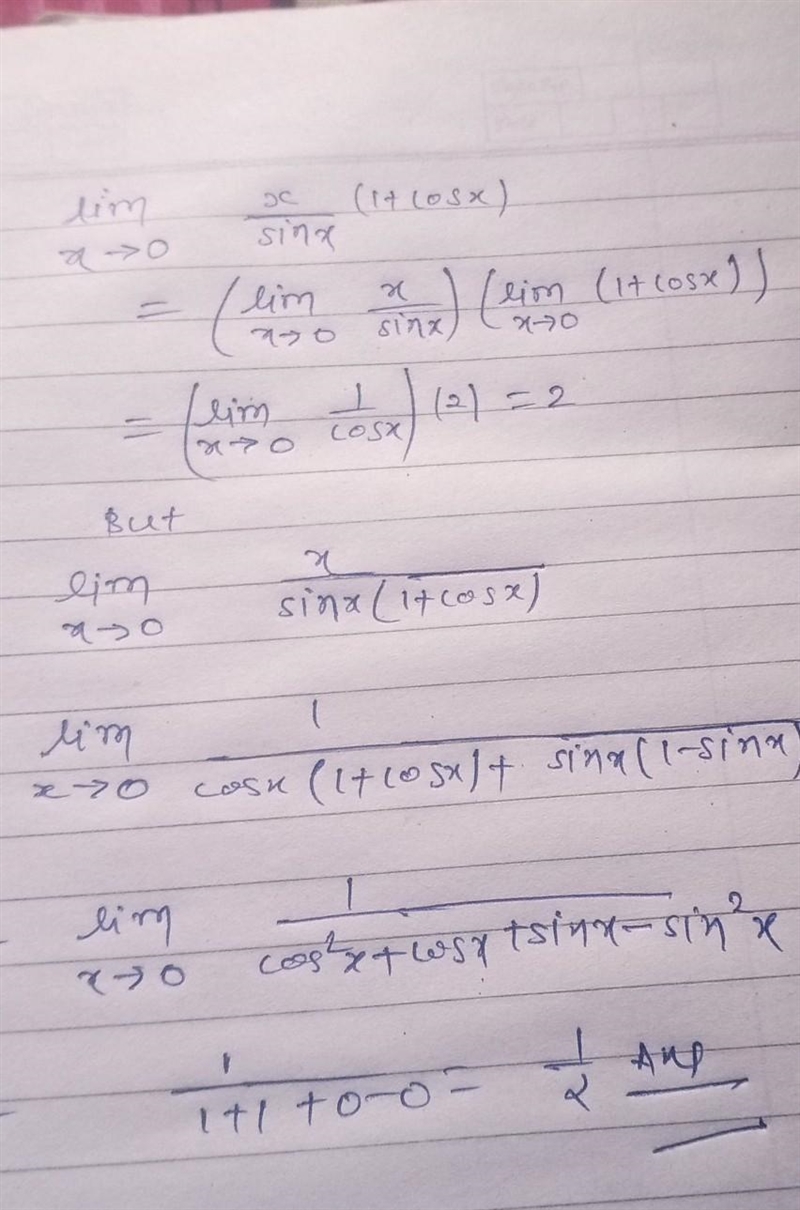 lim x→0 x/sinx (1+cosx)
= (lim x→0 x/sinx) (lim x→0 (1+cosx))
= (lim x→0 1/cosx) (2) = 2
But
lim x→0 x/sinx(1+cosx)
lim x→0 1/cosx(1+cosx)+ sinx(1-sinx)
lim x→0 1/cos²x+cosx+sinx-sin²x
1/1+1+0-0 = 1/2 Ans